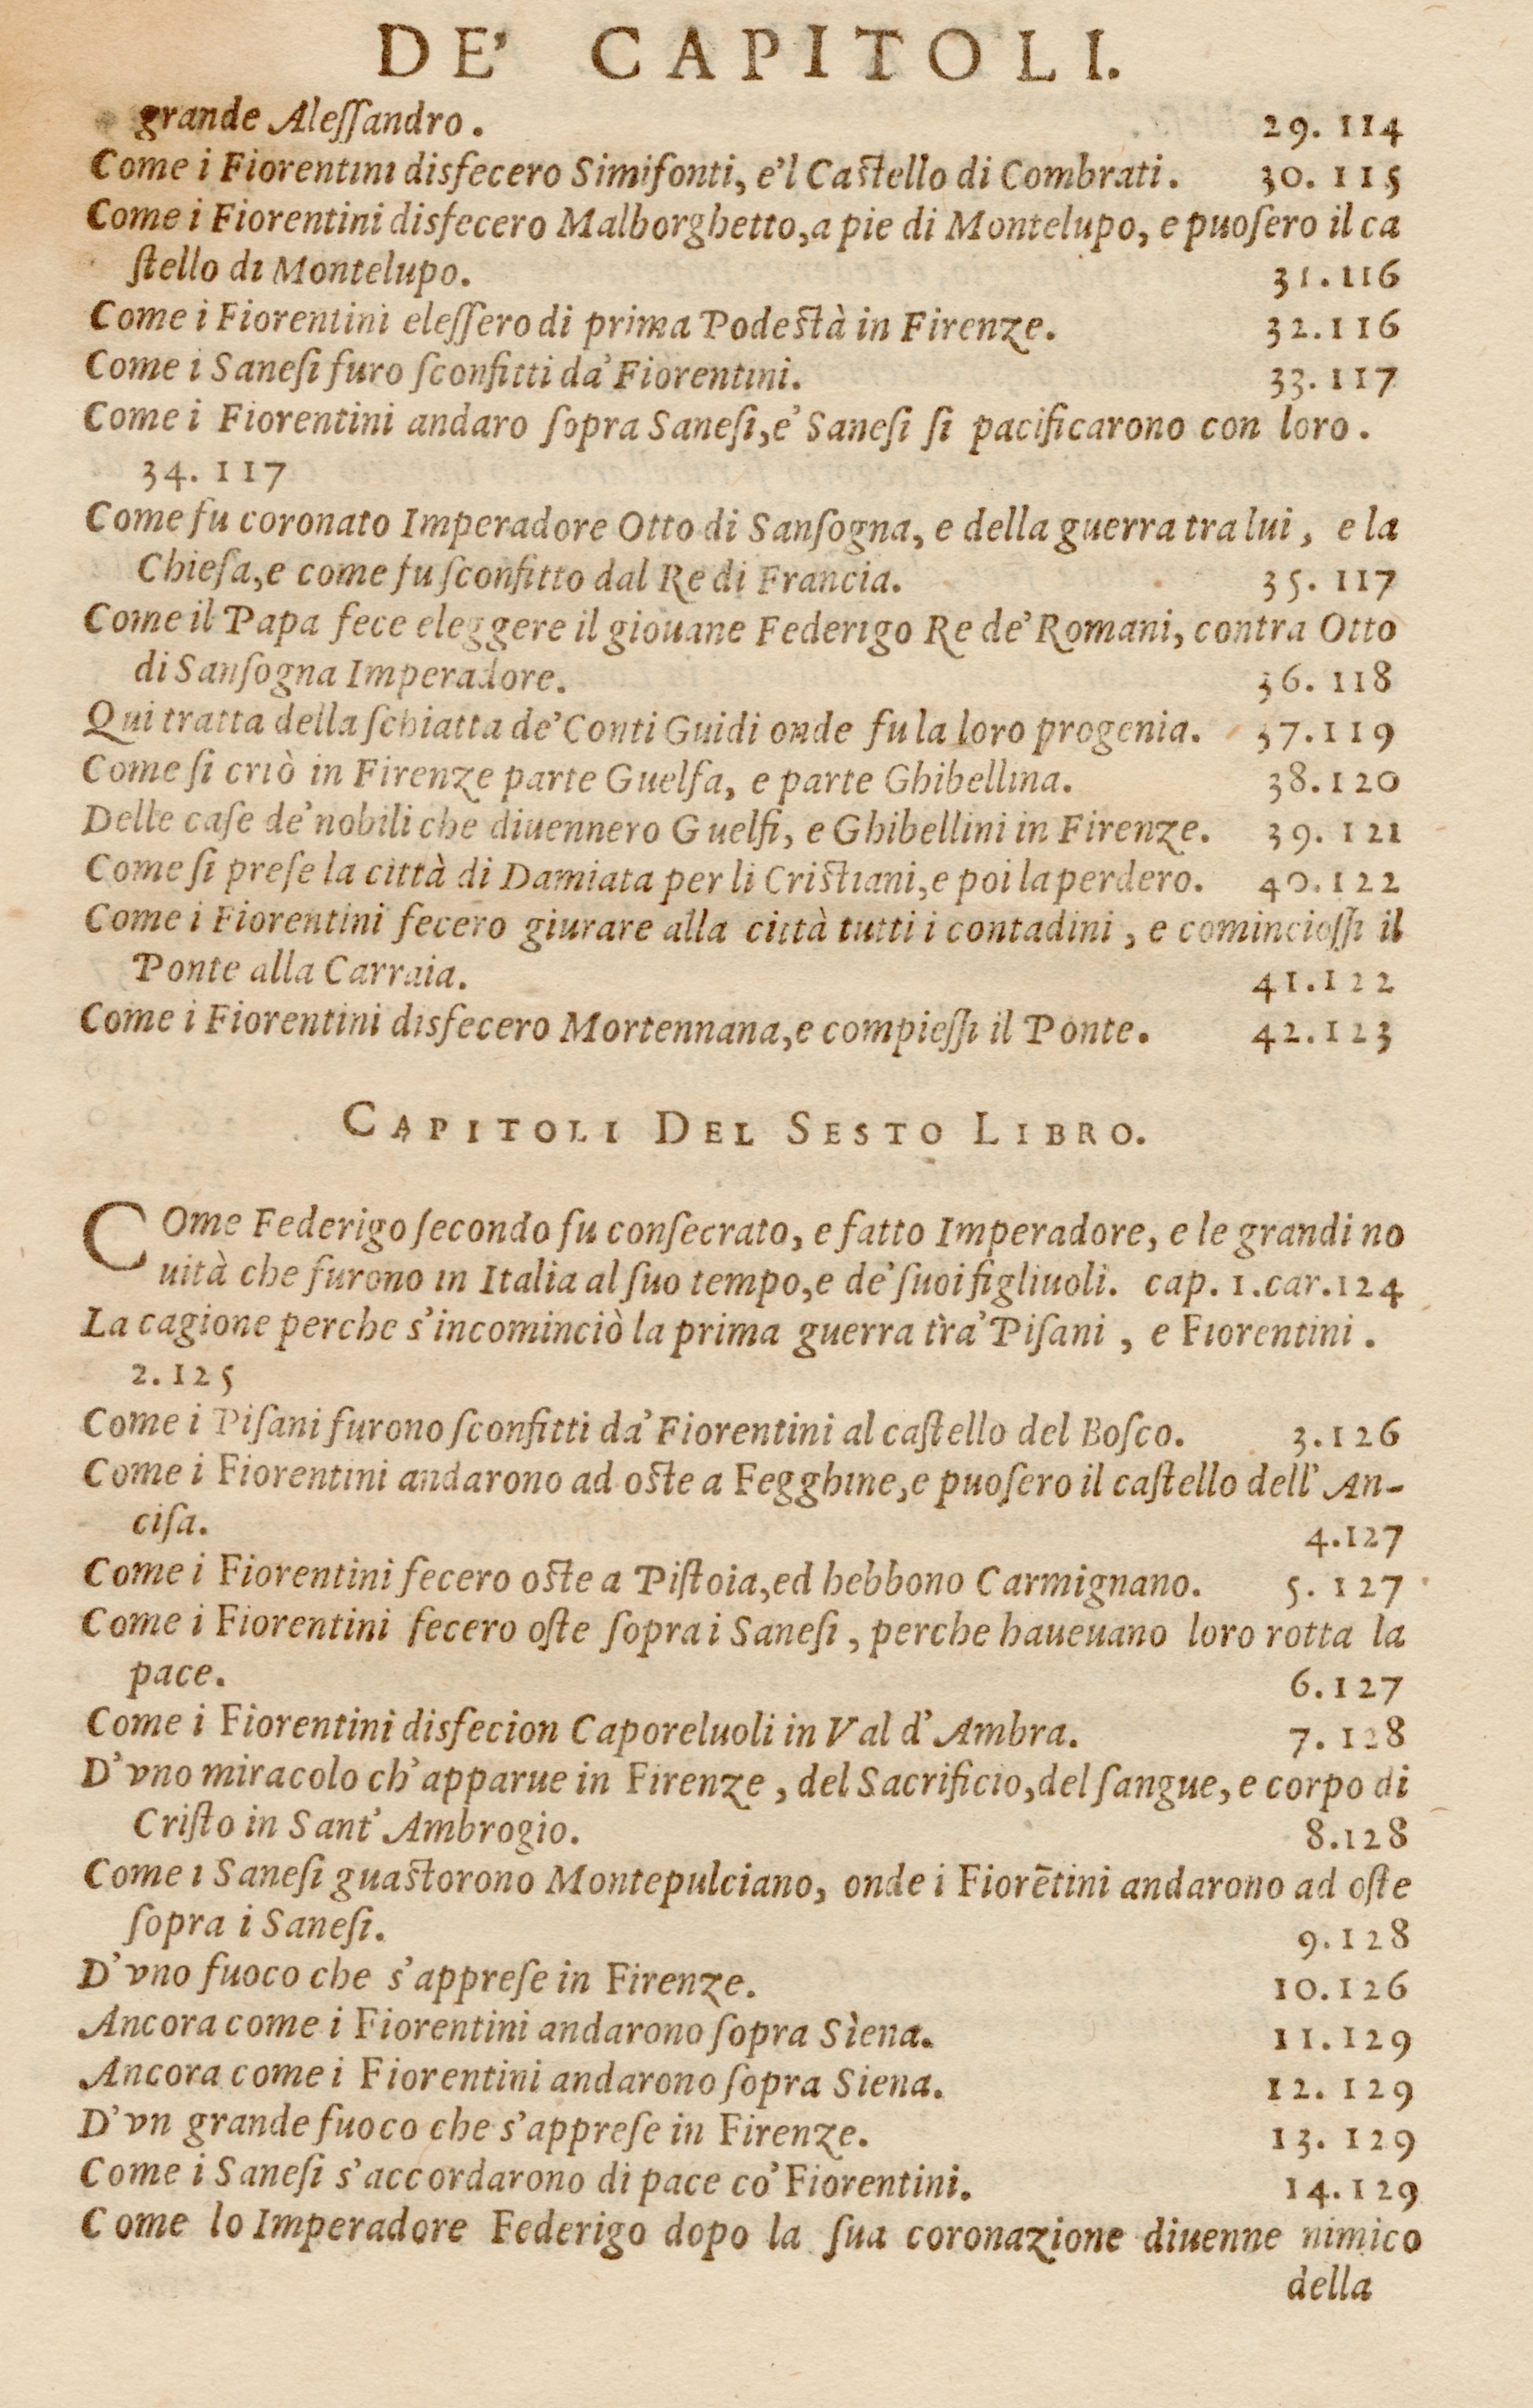 DE' CAPITOLI.
grande Aleſſandro. 29. 114
Come i Fiorentini disfecero Simifonti, e'l Caſtello di Combrati. 30. 115
Come i Fiorentini disfecero Malborghetto, a pie di Montelupo, e puoſero il ca
ſtello di Montelupo. 31. 116
Come i Fiorentini eleſſero di prima Podeſtà in Firenze. 32. 116
Come i Saneſi furo ſconfitti da' Fiorentini. 33. 117
Come i Fiorentini andaro ſopra Saneſi, e' Saneſi ſi pacificarono con loro.
34. 117
Come fu coronato Imperadore Otto di Sanſogna, e della guerra tra lui, e la
Chieſa, e come fu ſconfitto dal Re di Francia. 35. 117
Come il Papa fece eleggere il giouane Federigo Re de' Romani, contra Otto
di Sanſogna Imperadore. 36. 118
Qui tratta della ſchiatta de' Conti Guidi onde fu la loro progenia. 37. 119
Come ſi criò in Firenze parte Guelfa, e parte Ghibellina. 38. 120
Delle caſe de' nobili che diuennero Guelfi, e Ghibellini in Firenze. 39. 121
Come ſi preſe la città di Damiata per li Criſtiani, e poi la perdero. 40. 122
Come i Fiorentini fecero giurare alla città tutti i contadini, e comincioſſi il
Ponte alla Carraia. 41. 122
Come i Fiorentini disfecero Mortennana, e compieſſi il Ponte. 42. 123
CAPITOLI DEL SESTO LIBRO.
COme Federigo ſecondo fu conſecrato, e fatto Imperadore, e le grandi no
uità che furono in Italia al ſuo tempo, e de' ſuoi figliuoli. cap. 1. car. 124
La cagione perche s'incominciò la prima guerra trà' Piſani, e Fiorentini.
2. 125
Come i Piſani furono ſconfitti da' Fiorentini al caſtello del Boſco. 3. 126
Come i Fiorentini andarono ad oſte a Fegghine, e puoſero il caſtello dell' An-
ciſa. 4. 127
Come i Fiorentini fecero oſte a Piſtoia, ed hebbono Carmignano. 5. 127
Come i Fiorentini fecero oſte ſopra i Saneſi, perche haueuano loro rotta la
pace. 6. 127
Come i Fiorentini disfecion Caporeluoli in Val d' Ambra. 7. 128
D'vno miracolo ch'apparue in Firenze, del Sacrificio, del ſangue, e corpo di
Criſto in Sant' Ambrogio. 8. 128
Come i Saneſi guaſtorono Montepulciano, onde i Fiorētini andarono ad oſte
ſopra i Saneſi. 9. 128
D'vno fuoco che s'appreſe in Firenze. 10. 126
Ancora come i Fiorentini andarono ſopra Sìena. 11. 129
Ancora come i Fiorentini andarono ſopra Siena. 12. 129
D'vn grande fuoco che s'appreſe in Firenze. 13. 129
Come i Saneſi s'accordarono di pace co' Fiorentini. 14. 129
Come lo Imperadore Federigo dopo la ſua coronazione diuenne nimico
della